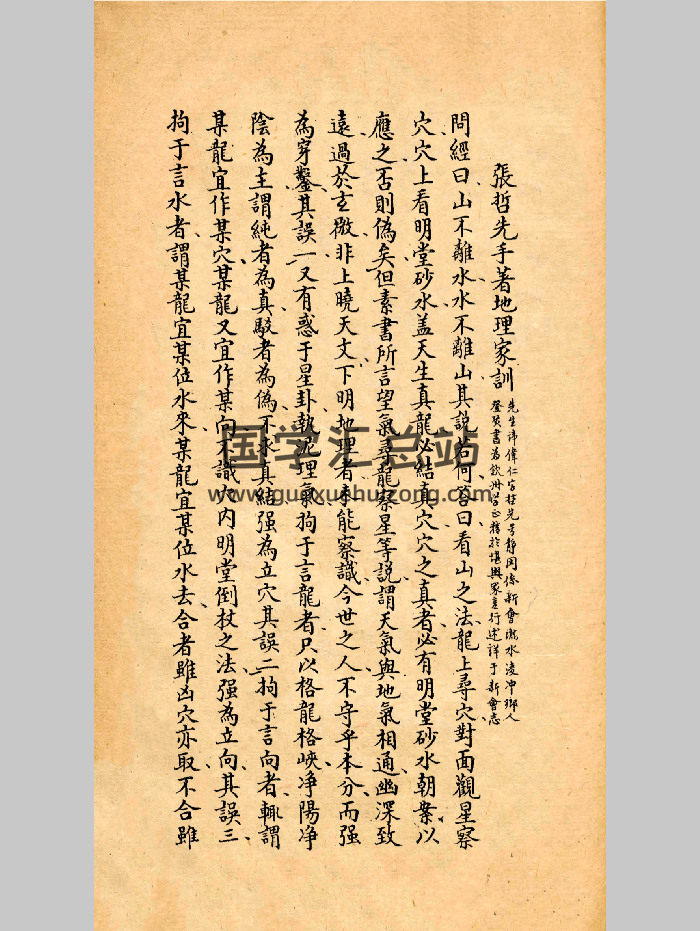 張哲先手著地理家訓
先生諱偉仁字哲先号静閑係新會潮水凌冲鄉人
登賢書为欽州学正精於堪輿家言行述詳于新會志
問經曰山不離水水不離山其說若何答曰看山之法龍上尋穴對面觀星察
穴穴上看明堂砂水盖天生真龍必結真穴穴之真者必有明堂砂水朝案以
應之否則偽矣但素書所言望氣尋龍察星等說謂天氣與地氣相通幽深致
遠過於玄微非上曉天文下明地理者未能察識今世之人不守乎本分而强
為穿鑿其誤一又有惑于星卦執泥理氣拘于言龍者只以格龍格峽净陽净
陰為主謂純者為真駁者為偽不求真結强為立穴其誤二拘于言向者輒謂
某龍宜作某穴某龍又宜作某向不識大内明堂倒杖之法强為立向其誤三
拘于言水者謂某龍宜某位水來某龍宜某位水去合者雖凶穴亦取不合雖
国学汇总站
www.guoxuehuizong.com